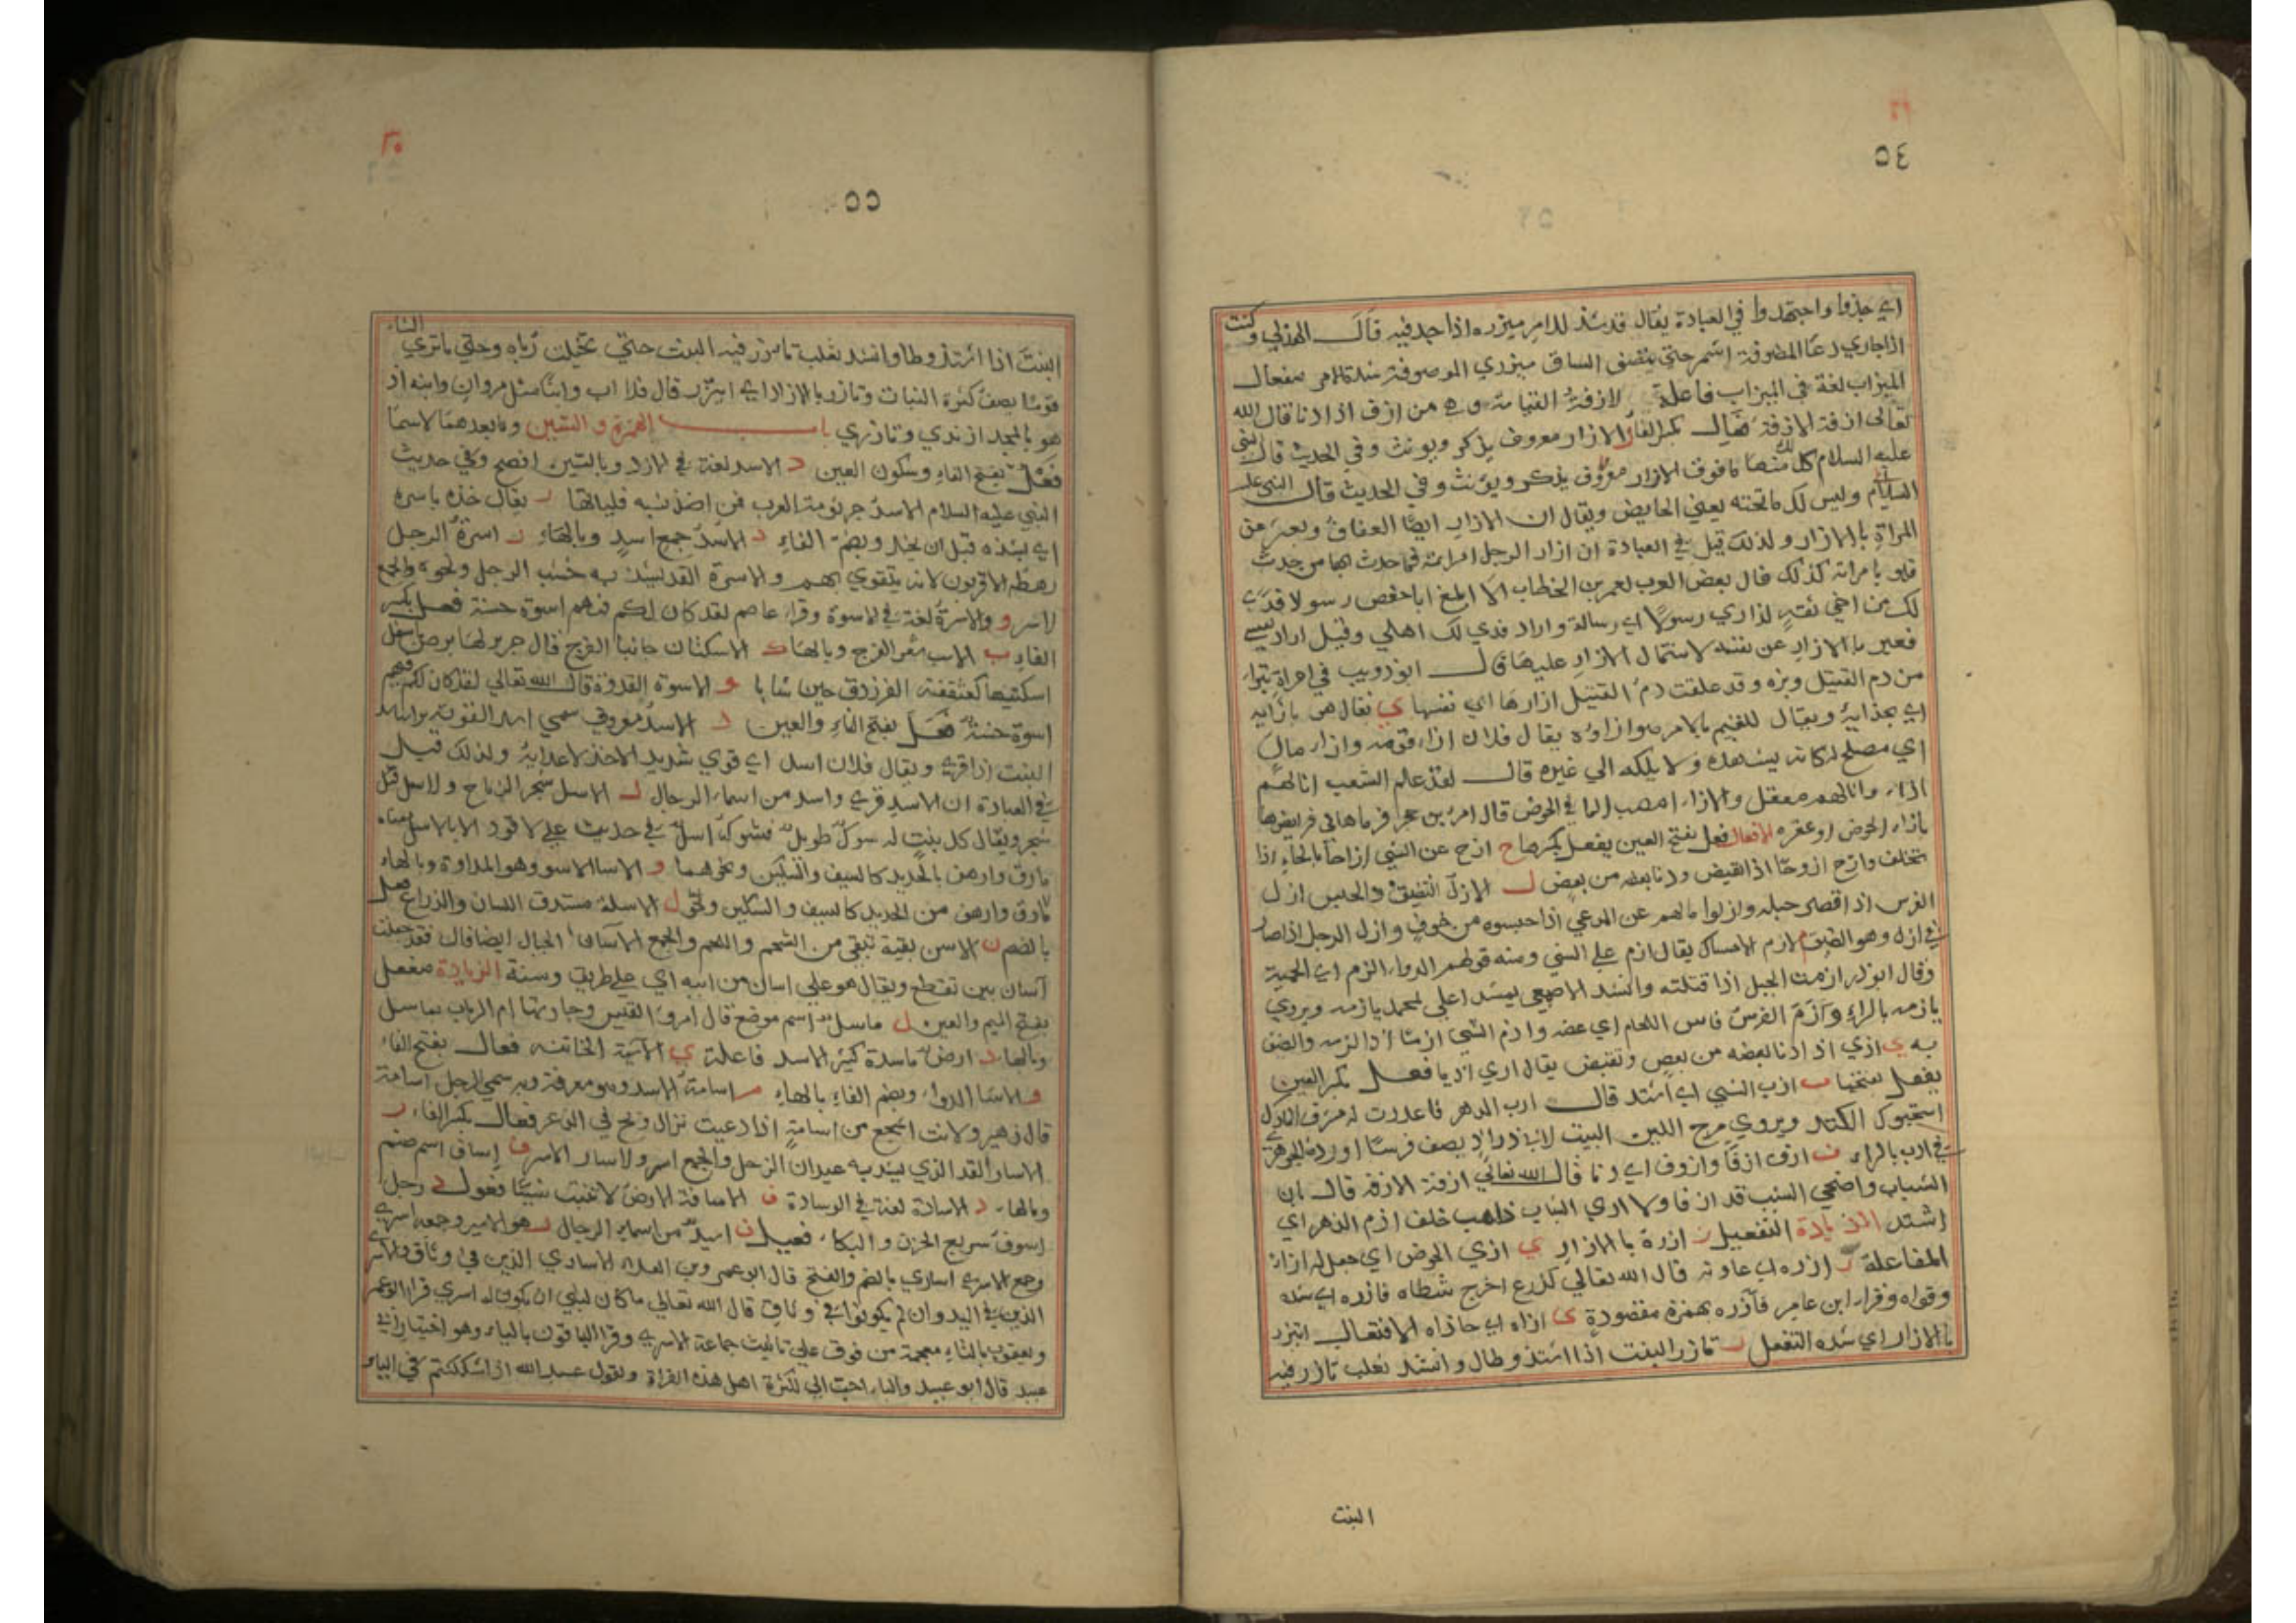 ٥٤
اي جدوا واجتهدوا في العبادة يقال قد شد للامر ميزره اذا جد فيه قال الهذلي وكنت
اذا جاري دعا لمضوفة اشمر حتى ينصف الساق ميزري المضوفة شدة الامر مفعال
الميزاب لغة في الميزاب فاعلة لازفة القيامة وهي من ازف اذا دنا قال الله
تعالى ازفة الازفة فعال بكسر الفا ر الازار معروف يذكر ويونث وفي الحديث قال النبي
عليه السلام لك منها ما فوق الازار معروف يذكر ويونث وفي الحديث قال النبي عليه
السلام وليس لك ما تحته يعني الحايض ويقال ان الازار ايضا العفاف ويعبر عن
المراة بالازار ولذلك قيل في العبادة ان ازار الرجل امراته فما حدث بها من حدث
فهو بامراته كذلك قال بعض العرب لعمر بن الخطاب الا ابلغ ابا حفص رسولا فدى
لك من اخي ثقة ازاري رسولا اي رسالة واراد فدي لك اهلي وقيل اراد نفسي
فعبر بالازار عن نفسه لاشتمال الازار عليها قال ابو ذويب في امراة تبرا
من دم القتيل وبزه وقد علقت دم القتيل ازارها اي نفسها ي يقال هو بازايه
اي بحذايه ويقال للقيم بالامر هو ازاوه يقال فلان ازاء قومه وازاء مال
اي مصلح له كانه يشاهده ولا يكله الي غيره قال لقد علم الشعب انا لهم
ازاء وانا لهم معقل والازاء مصب الما في الحوض قال امرؤ بن حجر فرماها في فرايصها
بازاء الحوض او عقره الافعال فعل بفتح العين يفعل بكسرها ح ازح عن الشي ازاحا بالحاء اذا
تخلف وازح ازوحا اذا تقبض ودنا بعضه من بعض ل الازل الضيق والحبس ازل
الفرس اذا قصر حبله وازلوا مالهم عن المرعي اذا حبسوه من خوف وازل الرجل اذا صار
في ازل وهو الضيق م الازم الامساك يقال ازم علي الشي ومنه قولهم الدواء الازم اي الحمية
وقال ابو زيد ازمت الحبل اذا فتلته وانشد الاصمعي يمسد اعلي لحمه يازمه ويروي
يارمه بالراء وازم الفرس فاس اللجام اي عضه وازم الشي ازما اذا لزمه والضف
به ي ازي اذا دنا بعضه من بعض وتقبض يقال ازي ازيا فعل بكسر العين
يفعل بفتحها ب ازب الشي اي اشتد قال ارب الدهر فاعددت له مشرف الحارك
محبوك الكتد ويروي مرج الدين البيت لابي دواد يصف فرسا اورده الجوهري
في ارب بالراء ف ازف ازفا وازوفا اي دنا قال الله تعالي ازفة الازفة قال بان
الشباب واضحي الشيب قد ازفا ولا اري الشباب ذاهب خلف ازم الدهر اي
اشتد الزيادة التفعيل ر ازرة بالازار ي ازي الحوض اي جعل له ازاء
المفاعلة ر ازره اي عاونه قال الله تعالي كزرع اخرج شطاه فازره اي شده
وقواه وقرا ابن عامر فأزره بهمزة مقصودة ي ازاه اي حاذاه الافتعال اتزر
بالازار اي شده التفعل ر تازر البنت اذا اشتد وطال وانشد ثعلب تازر فيه
البنت
٣٠
٥٥
البنت اذا اشتد وطال وانشد ثعلب تازر فيه البنت حتي تخيلت رباه وحتي ما تري الشاء
نوما يصف كثرة النبات وتازر بالازار اي اتزر قال فلا اب وابنا مثل مروان وابنه اذ
هو بالمجد ارتدي وتازري باب الهمزة والسين وما بعدهما الاسما
فعل بفتح الفاء وسكون العين د الاسد لغة في الازد وبالسين افصح وفي حديث
النبي عليه السلام الاسد جرثومة العرب فمن اضل نسبه فلياتها ر يقال خذه باسره
اي بشده قبل ان يحل وبضم الفاء د الاسد جمع اسد وبالهاء ر اسرة الرجل
رهطه الاقربون لانه يتقوي بهم والاسرة القد يشد به خشب الرجل ونحوه والجمع
لاسر و والاسوة لغة في الاسوة وقراء عاصم لقد كان لكم فيهم اسوة حسنة فعل بكسر
الفاء ب الاسب شعر الفرج وبالهاء ك الاسكتان جانبا الفرج قال جرير لها برص باسفل
اسكتيها كعنفقة الفرزدق حين شابا و الاسوة القدوة قال الله تعالي لقد كان لكم فيهم
اسوة حسنة فعل بفتح الفاء والعين د الاسد معروف سمي اسدا لقوته يراستد
البنت اذا قوي ويقال فلان اسد اي قوي شديد الاخذ لاعدايه ولذلك قيل
في العبادة ان الاسد قوي واسد من اسماء الرجال ل الاسل شجر الرماح والاسل قيل
شجر ويقال كل بنت له شوك طويل فشوكه اسل في حديث علي لا قود الا بالاسل معناه
ما رق وارهف بالحديد كالسيف والسكين ونحوهما و الاسا الاسو وهو المداوة وبالهاء
مارق وارهف من الحديد كالسيف والسكين ونحو ل الاسلة مستدق اللسان والذراع فعل
بالضم ن الاسن بقية تبقي من الشحم واللحم والجمع الآسان الحبال ايضا قال فقد جعلت
آسان بين تقطع ويقال هو علي اسان من ابيه اي علي طريق وسنة الزيادة مفعل
بفتح الميم والعين ل ماسل اسم موضع قال امرؤ القيس وجارتها ام الرباب بماسل
وبالهاء د ارض ماسدة كثير الاسد فاعلة ي الآسية الخاتنة فعال بفتح الفاء
و الاسا الدواء وبضم الفاء بالهاء م اسامة الاسد وهو معرفة وبه سمي الرجل اسامة
قال زهير ولانت اشجع من اسامة اذا دعيت نزال ولج في الذعر فعال بكسر الفاء ر
الاسار القد الذي يشد به عيدان الرحل والجمع اسر والاسار الاسر ف اساف اسم صنم
وبالهاء د الاسادة لغة في الوسادة ف الاسافة الارض لا تنبت شيئا فعول ف رجل
اسوف سريع الحزن والبكاء فعيل د اسيد من اسماء الرجال ر هو الاسير وجمعه اسري
وجمع الاسري اساري بالضم والفتح قال ابو عمرو بن العلاء الاساري الذين في وثاق والاسري
الذين في اليد وان لم يكونوا في وثاق قال الله تعالي ما كان لنبي ان يكون له اسري قرا ابو عمر
ويعقوب بالتاء معجمة من فوق علي تانيث جماعة الاسري وقرا الباقون بالياء وهو اختيار ابي
عبيد قال ابو عبيد والياء احب الي لكثرة اهل هذه القراة ولقول عبد الله اذا شككتم في الياء